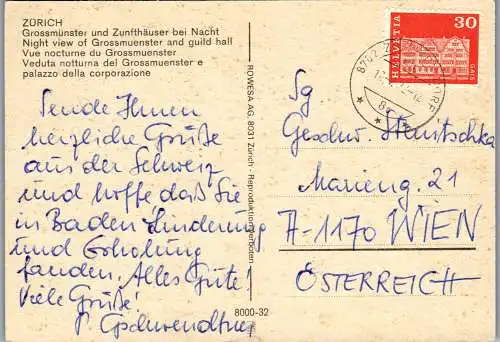 ZÜRICH
Grossmünster und Zunfthäuser bei Nacht
Night view of Grossmuenster and guild hall
Vue nocturne du Grossmuenster e
Veduta notturna del Grossmuenster e
palazzo della corporazione
Sende Ihnen
herzliche Grüße
aus der Schweiz
und hoffe daß Sie
in Baden Linderung
und Erholung
fanden. Alles Gute!
Viele Grüße!
ROWESA AG, 8031 Zürich - Reproduktion verboten
8000-32
HELVETIA
30
GAIS
8702
Sg
Geschw.
Marieng. 21
A-1170 WIEN
ÖSTERREICH